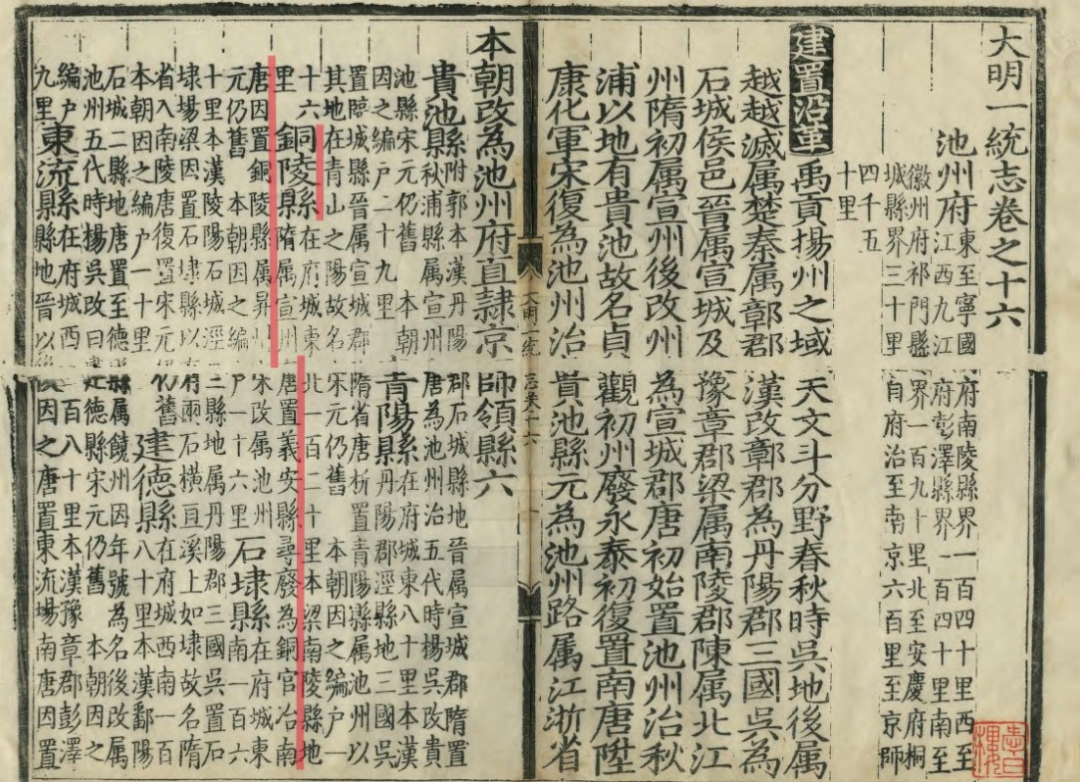 大明一統志卷之十六
池州府東至寧國府南陵縣界一百四十里西至
江西九江府彭澤縣界一百四十里南至
徽州府祁門縣界一百九十里北至安慶府桐
城縣界三十里自府治至南京六百里至京師
四千五
十里
建置沿革禹貢揚州之域天文斗分野春秋時吳地後属
越越滅属楚秦属鄣郡漢改鄣郡為丹陽郡三國吳為
石城侯邑晉属宣城及豫章郡梁属南陵郡陳属北江
州隋初属宣州後改州為宣城郡唐初始置池州治秋
浦以地有貴池故名貞觀初州廢永泰初復置南唐陞
康化軍宋復為池州治貴池縣元為池州路属江浙省
大明一統志卷十六
本朝改為池州府直隷京師領縣六
貴池縣附郭本漢丹陽郡石城縣地晉属宣城郡隋置
秋浦縣属宣州唐為池州治五代時楊吳改貴
池縣宋元仍舊 本朝
因之編户二十九里
青陽縣在府城東八十里本漢
丹陽郡涇縣地三國吳
置臨城縣晉属宣城郡隋省唐析置青陽縣属池州以
其地在青山之陽故名宋元仍舊 本朝因之編户一
十六
里
銅陵縣在府城東北一百二十里本梁南陵縣地
隋属宣州唐置義安縣尋廢為銅官冶南
唐因置銅陵縣属昇州宋改属池州
元仍舊 本朝因之編户一十六里
石埭縣在府城東
南一百六
十里本漢陵陽石城涇三縣地属丹陽郡三國吳置石
埭場梁因置石埭縣以有兩石橫亘溪上如埭故名隋
省入南陵唐復置宋元仍舊
本朝因之編户一十里
建德縣在府城西南一百
八十里本漢鄱陽
石城二縣地唐置至德縣属饒州因年號為名後改属
池州五代時楊吳改曰建德縣宋元仍舊 本朝因之
編户
九里
東流縣在府城西一百八十里本漢豫章郡彭澤
縣地晉以後因之唐置東流場南唐因置